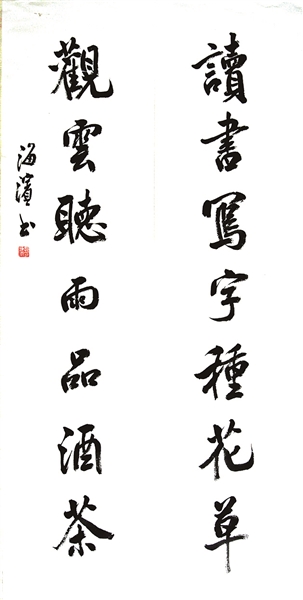 讀書寫字種花草
觀雲聽雨品酒茶
海濱书